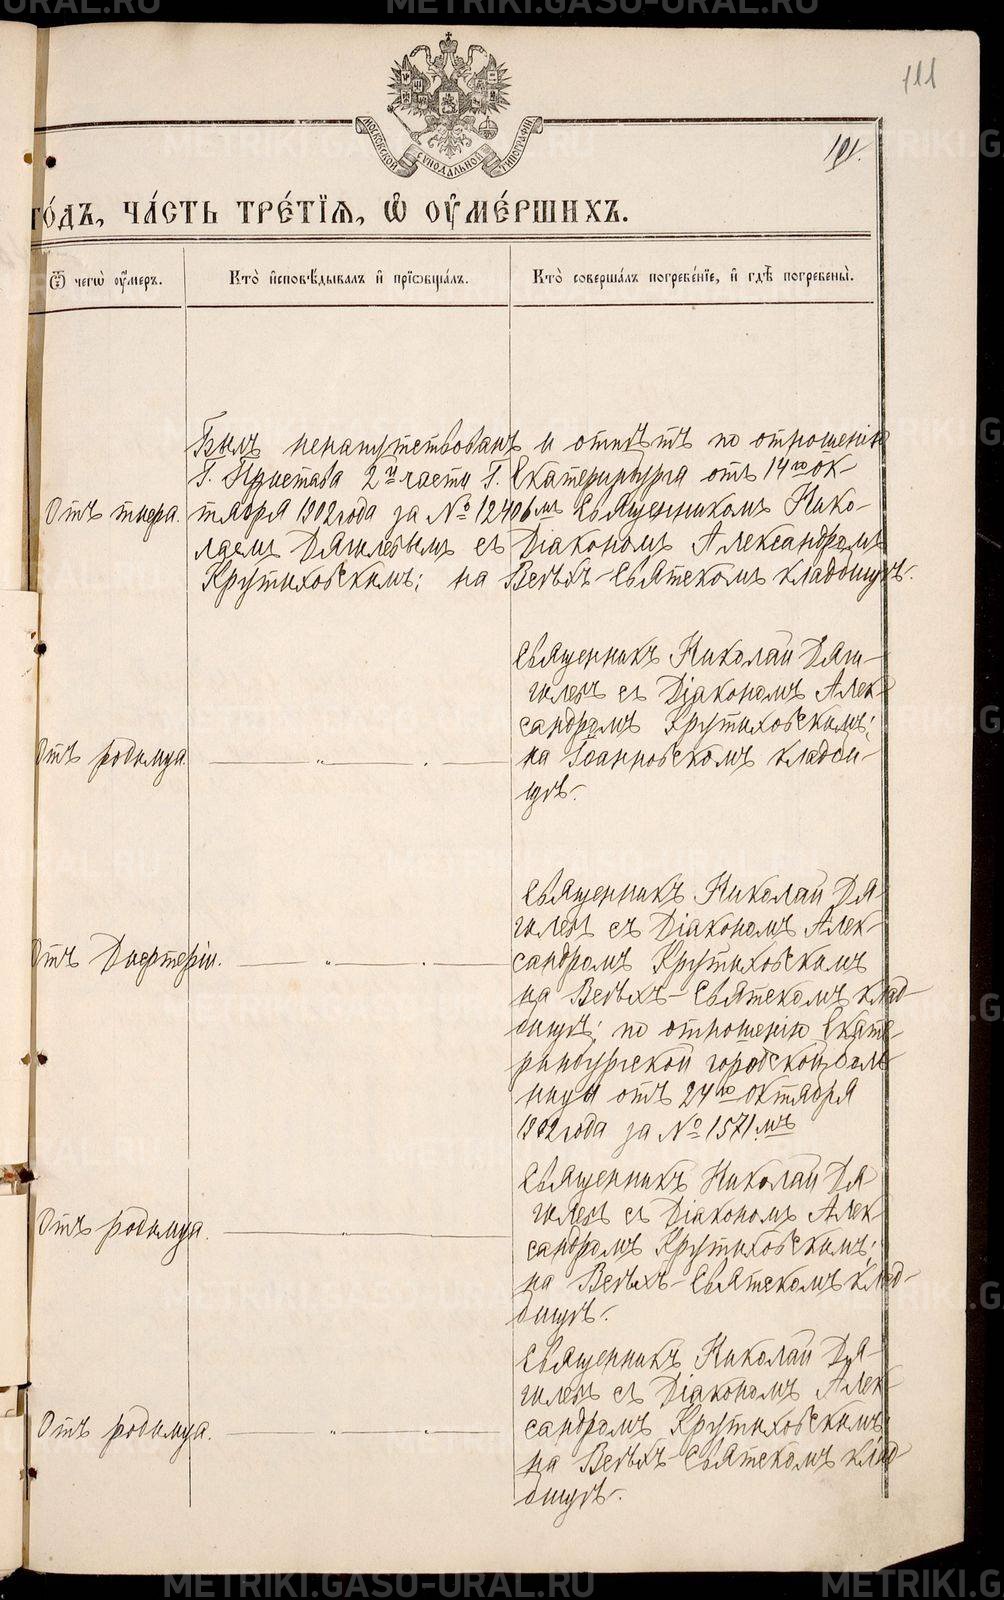 METRIKI.GASO-URAL.RU
111
МОСКОВСКОЙ СѴНОДАЛЬНОЙ ТИПОГРАФІИ
101.
го́дъ, ча́сть тре́тїѧ, ѡ҆ ᲂу҆ме́ршихъ.
Ѿ чегѡ̀ ᲂу҆́меръ.
Кто̀ и҆сповѣ́дывалъ и҆ прїѡбща́лъ.
Кто̀ соверша́лъ погребе́нїе, и҆ гдѣ̀ погребены̀.
Отъ тифа.
Былъ ненапутствованъ и отпѣтъ по отношенію
Г. Пристава 2й части г. Екатеринбурга отъ 14го ок-
тября 1902 года за № 12406мъ Священникомъ Нико-
лаемъ Дягилевымъ съ Діакономъ Александромъ
Крутиховскимъ; на Всѣхъ-Святскомъ кладбищѣ.
Отъ родимца.
Священникъ Николай Дяги-
гилевъ съ Діакономъ Алек-
сандромъ Крутиховскимъ;
на Іоанновскомъ кладби-
щѣ.
Отъ Дифтеріи.
Священникъ Николай Дя-
гилевъ съ Діакономъ Алек-
сандромъ Крутиховскимъ
на Всѣхъ-Святскомъ клад-
бищѣ; по отношенію Екате-
ринбургской городской боль-
ницы отъ 24го октября
1902 года за № 1571.мъ
Отъ родимца.
Священникъ Николай Дя-
гилевъ съ Діакономъ Алек-
сандромъ Крутиховскимъ;
на Всѣхъ-Святскомъ клад-
бищѣ.
Отъ родимца.
Священникъ Николай Дя-
гилевъ съ Діакономъ Алек-
сандромъ Крутиховскимъ
на Всѣхъ-Святскомъ клад-
бищѣ.